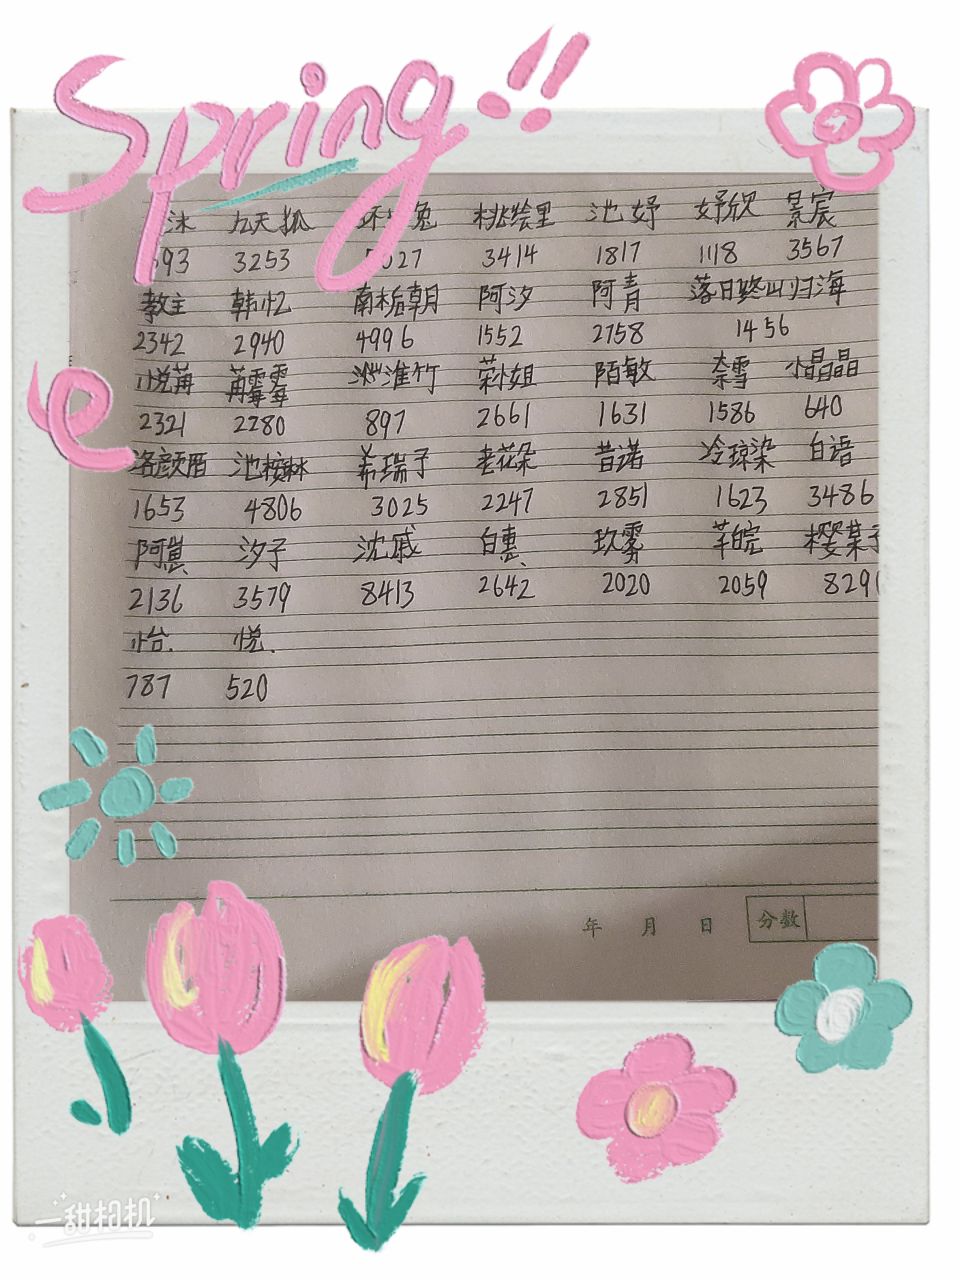 Spring!!
沐 九天狐 兔 桃绘里 池妤 妤欣 景宸
93 3253 27 3414 1817 1118 3567
教主 韩忆 南栀朝月 阿汐 阿青 落日终山归海
2342 2940 4996 1552 2758 1456
悦苒 苒霉霉 淮竹 荣小姐 陌敏 奈雪 小晶晶
2321 2280 897 2661 1631 1586 640
e
洛颜 池桉 希瑞子 老花朵 昔诺 冷琼染 白语
1653 4806 3025 2247 2851 1623 3486
阿 汐子 沈戚 白惠 玖雾 芊皖 樱菓子
2136 3579 8413 2642 2020 2059 829
怡. 悦.
787 520
年 月 日 分数
一甜相机